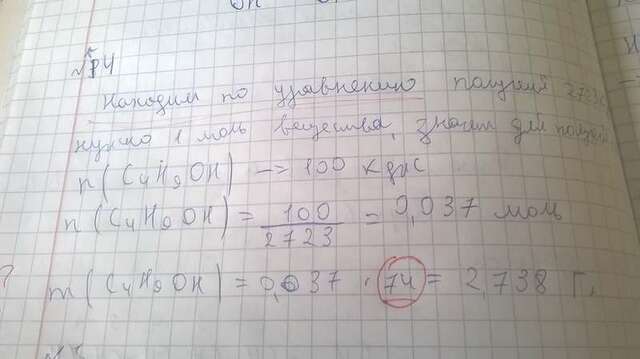 №4
Находим по уравнению 2723
нужно 1 моль вещества, значит для
n(C4H9OH) -> 100 кДж
n(C4H9OH) = 100/2723 = 0,037 моль
m(C4H9OH) = 0,037 · 74 = 2,738 г.